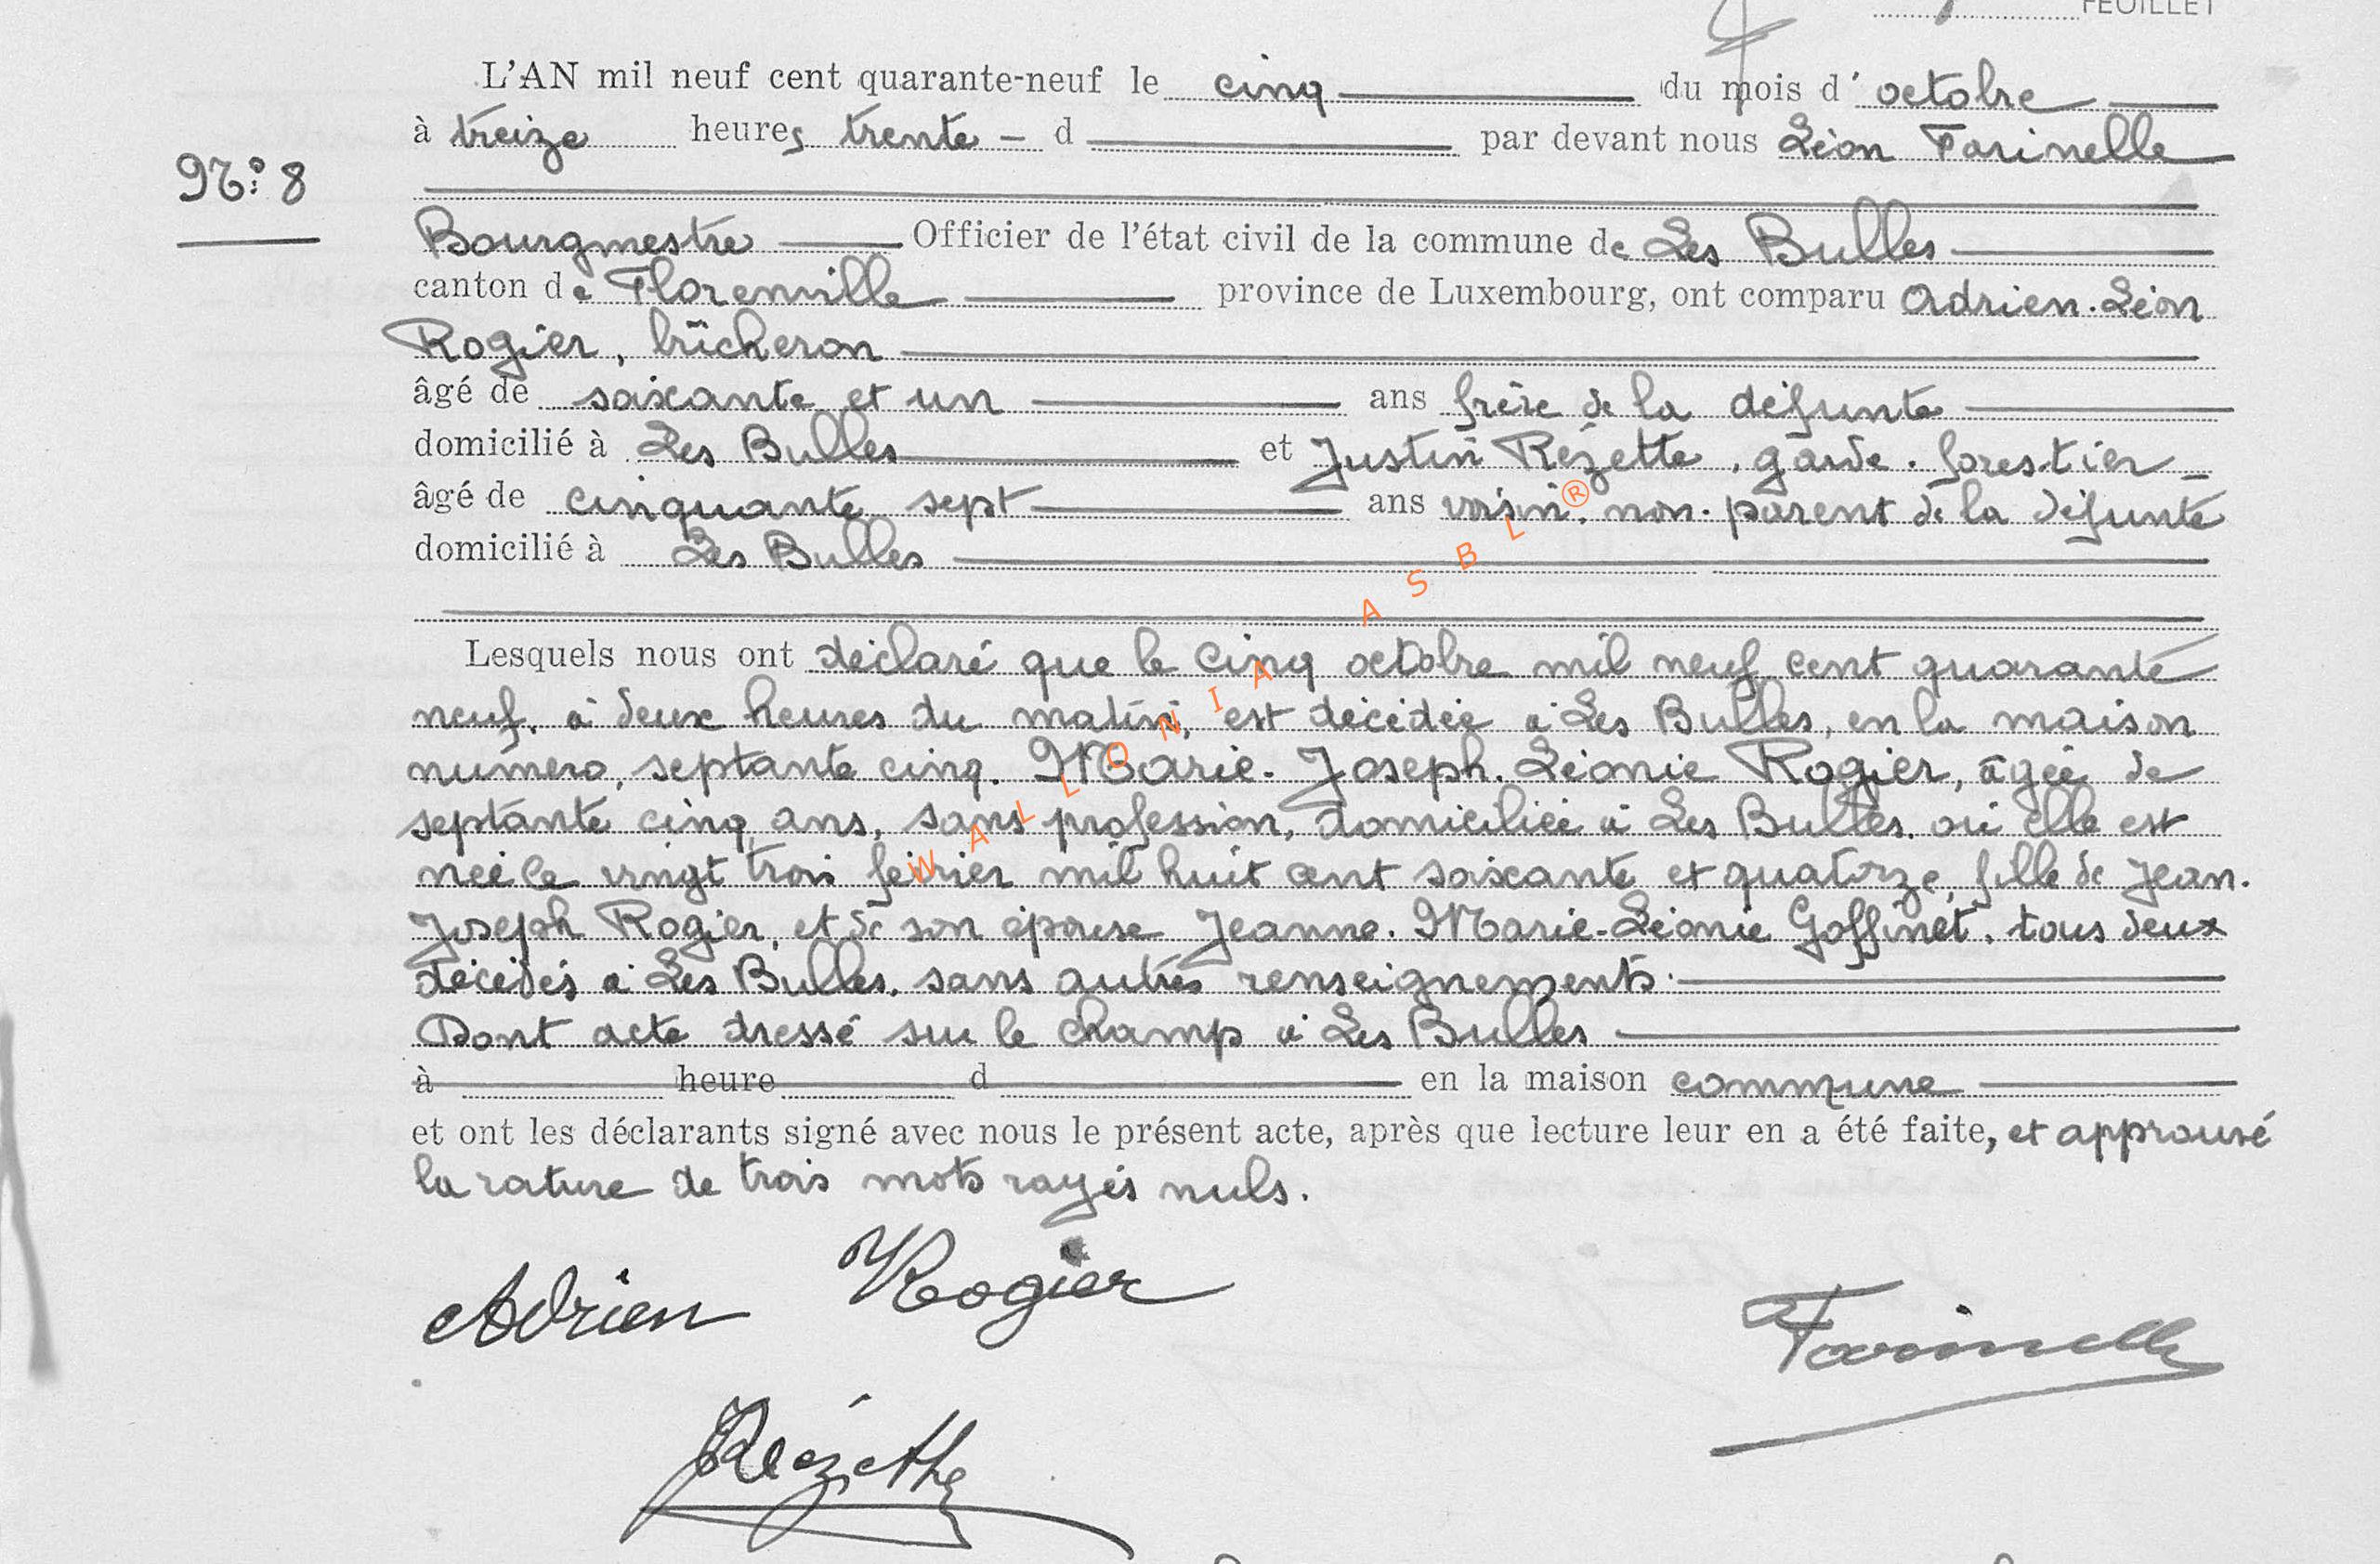 FEUILLET
L'AN mil neuf cent quarante-neuf le cinq du mois d'octobre
à treize heures trente - d par devant nous Léon Farinelle
N° 8
Bourgmestre Officier de l'état civil de la commune de Les Bulles
canton de Florenville province de Luxembourg, ont comparu Adrien-Léon
Rogier, bûcheron
âgé de soixante et un ans frère de la défunte
domicilié à Les Bulles et Justin Rézette, garde-forestier
âgé de cinquante sept ans voisin, non-parent de la défunte
domicilié à Les Bulles
Lesquels nous ont déclaré que le cinq octobre mil neuf cent quarante
neuf, à deux heures du matin, est décédée à Les Bulles, en la maison
numéro, septante cinq. Marie-Joseph-Léonie Rogier, âgée de
septante cinq ans, sans profession, domiciliée à Les Bulles, où elle est
née le vingt trois février mil huit cent soixante et quatorze, fille de Jean-
Joseph Rogier, et de son épouse Jeanne-Marie-Léonie Goffinet, tous deux
décédés à Les Bulles, sans autres renseignements.
Dont acte dressé sur le champ à Les Bulles
à heure d en la maison commune
et ont les déclarants signé avec nous le présent acte, après que lecture leur en a été faite, et approuvé
la rature de trois mots rayés nuls.
Adrien Rogier
Farinelle
Rézette
WALLONIA ASBL ®